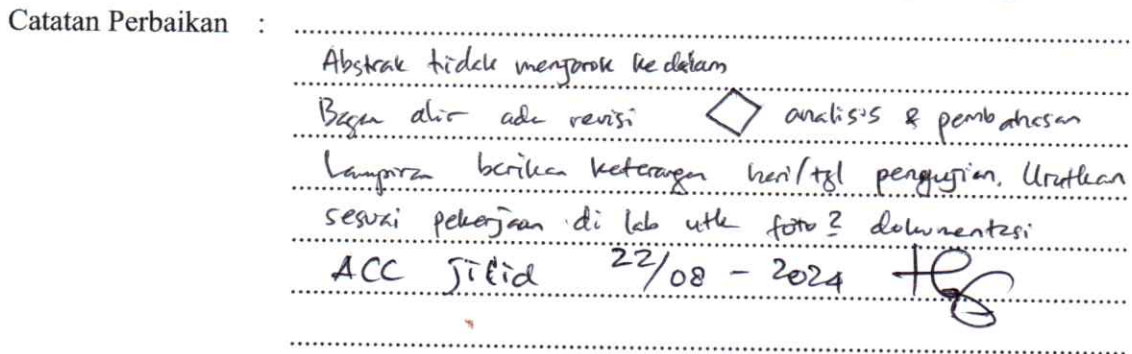 Catatan Perbaikan :
Abstrak tidak menjorok kedalam
Bagan alir ada revisi ◇ analisis & pembahasan
Lampiran berikan keterangan hari/tgl pengujian. Urutkan
sesuai pekerjaan di lab utk foto2 dokumentasi
ACC jilid 22/08 - 2024